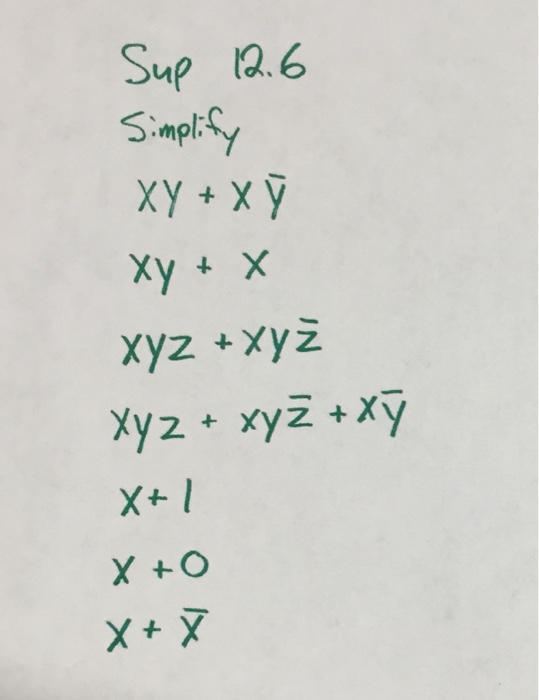 Sup 12.6
Simplify
xy + x ȳ
xy + x
xyz + xyz̄
xyz + xyz̄ + xȳ
x + 1
x + 0
x + x̄